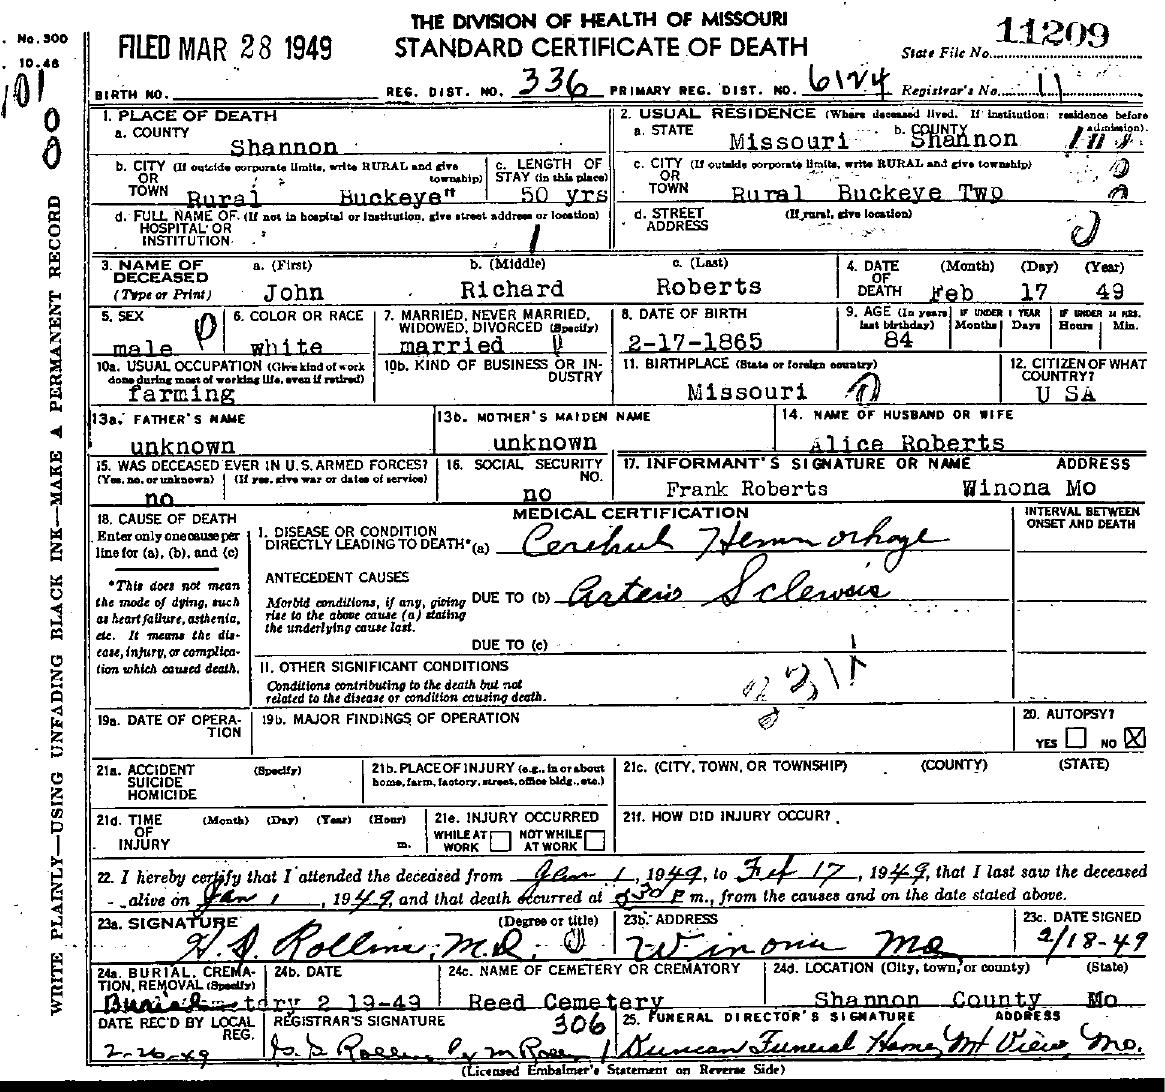 THE DIVISION OF HEALTH OF MISSOURI
STANDARD CERTIFICATE OF DEATH
FILED MAR 28 1949
No. 300
10.48
State File No. 11209
BIRTH NO. REG. DIST. NO. 336 PRIMARY REG. DIST. NO. 6124 Registrar's No. 11
1. PLACE OF DEATH
a. COUNTY Shannon
2. USUAL RESIDENCE (Where deceased lived. If institution: residence before admission).
a. STATE Missouri b. COUNTY Shannon
b. CITY (If outside corporate limits, write RURAL and give township)
OR
TOWN Rural Buckeye"
c. LENGTH OF STAY (in this place)
50 yrs
c. CITY (If outside corporate limits, write RURAL and give township)
OR
TOWN Rural Buckeye Twp
d. FULL NAME OF (If not in hospital or institution, give street address or location)
HOSPITAL OR
INSTITUTION
d. STREET ADDRESS (If rural, give location)
3. NAME OF DECEASED (Type or Print)
a. (First) b. (Middle) c. (Last)
John Richard Roberts
4. DATE OF DEATH (Month) (Day) (Year)
Feb 17 49
5. SEX
male
6. COLOR OR RACE
white
7. MARRIED, NEVER MARRIED, WIDOWED, DIVORCED (Specify)
married
8. DATE OF BIRTH
2-17-1865
9. AGE (In years last birthday)
84
IF UNDER 1 YEAR
Months Days
IF UNDER 24 HRS.
Hours Min.
10a. USUAL OCCUPATION (Give kind of work done during most of working life, even if retired)
farming
10b. KIND OF BUSINESS OR INDUSTRY
11. BIRTHPLACE (State or foreign country)
Missouri
12. CITIZEN OF WHAT COUNTRY?
U SA
13a. FATHER'S NAME
unknown
13b. MOTHER'S MAIDEN NAME
unknown
14. NAME OF HUSBAND OR WIFE
Alice Roberts
15. WAS DECEASED EVER IN U.S. ARMED FORCES?
(Yes, no, or unknown) (If yes, give war or dates of service)
no
16. SOCIAL SECURITY NO.
no
17. INFORMANT'S SIGNATURE OR NAME ADDRESS
Frank Roberts Winona Mo
MEDICAL CERTIFICATION
18. CAUSE OF DEATH
Enter only one cause per line for (a), (b), and (c)
*This does not mean the mode of dying, such as heart failure, asthenia, etc. It means the disease, injury, or complication which caused death.
I. DISEASE OR CONDITION DIRECTLY LEADING TO DEATH* (a) Cerebral Hemmorhage
ANTECEDENT CAUSES
Morbid conditions, if any, giving rise to the above cause (a) stating the underlying cause last.
DUE TO (b) Arterio Sclerosis
DUE TO (c)
II. OTHER SIGNIFICANT CONDITIONS
Conditions contributing to the death but not related to the disease or condition causing death.
INTERVAL BETWEEN ONSET AND DEATH
19a. DATE OF OPERATION
19b. MAJOR FINDINGS OF OPERATION
20. AUTOPSY?
YES NO X
21a. ACCIDENT SUICIDE HOMICIDE (Specify)
21b. PLACE OF INJURY (e.g., in or about home, farm, factory, street, office bldg., etc.)
21c. (CITY, TOWN, OR TOWNSHIP) (COUNTY) (STATE)
21d. TIME OF INJURY (Month) (Day) (Year) (Hour) m.
21e. INJURY OCCURRED
WHILE AT WORK NOT WHILE AT WORK
21f. HOW DID INJURY OCCUR?
22. I hereby certify that I attended the deceased from Jan 1, 1949, to Feb 17, 1949, that I last saw the deceased
alive on Jan 1, 1949, and that death occurred at 830 P m., from the causes and on the date stated above.
23a. SIGNATURE (Degree or title)
Rollins, M.D.
23b. ADDRESS
Winona Mo
23c. DATE SIGNED
2/18-49
24a. BURIAL, CREMATION, REMOVAL (Specify)
Burial
24b. DATE
2 19-49
24c. NAME OF CEMETERY OR CREMATORY
Reed Cemetery
24d. LOCATION (City, town, or county) (State)
Shannon County Mo
DATE REC'D BY LOCAL REG.
2-26-49
REGISTRAR'S SIGNATURE
306
25. FUNERAL DIRECTOR'S SIGNATURE ADDRESS
Duncan Funeral Home, Mt View, Mo.
(Licensed Embalmer's Statement on Reverse Side)
WRITE PLAINLY—USING UNFADING BLACK INK—MAKE A PERMANENT RECORD